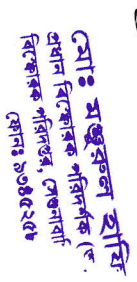 মোঃ মঞ্জুরুল হাফিজ
প্রধান বিস্ফোরক পরিদর্শক (চ.
বিস্ফোরক পরিদপ্তর, সেগুনবাগি
ফোনঃ ৮৩৪৫২৫৮